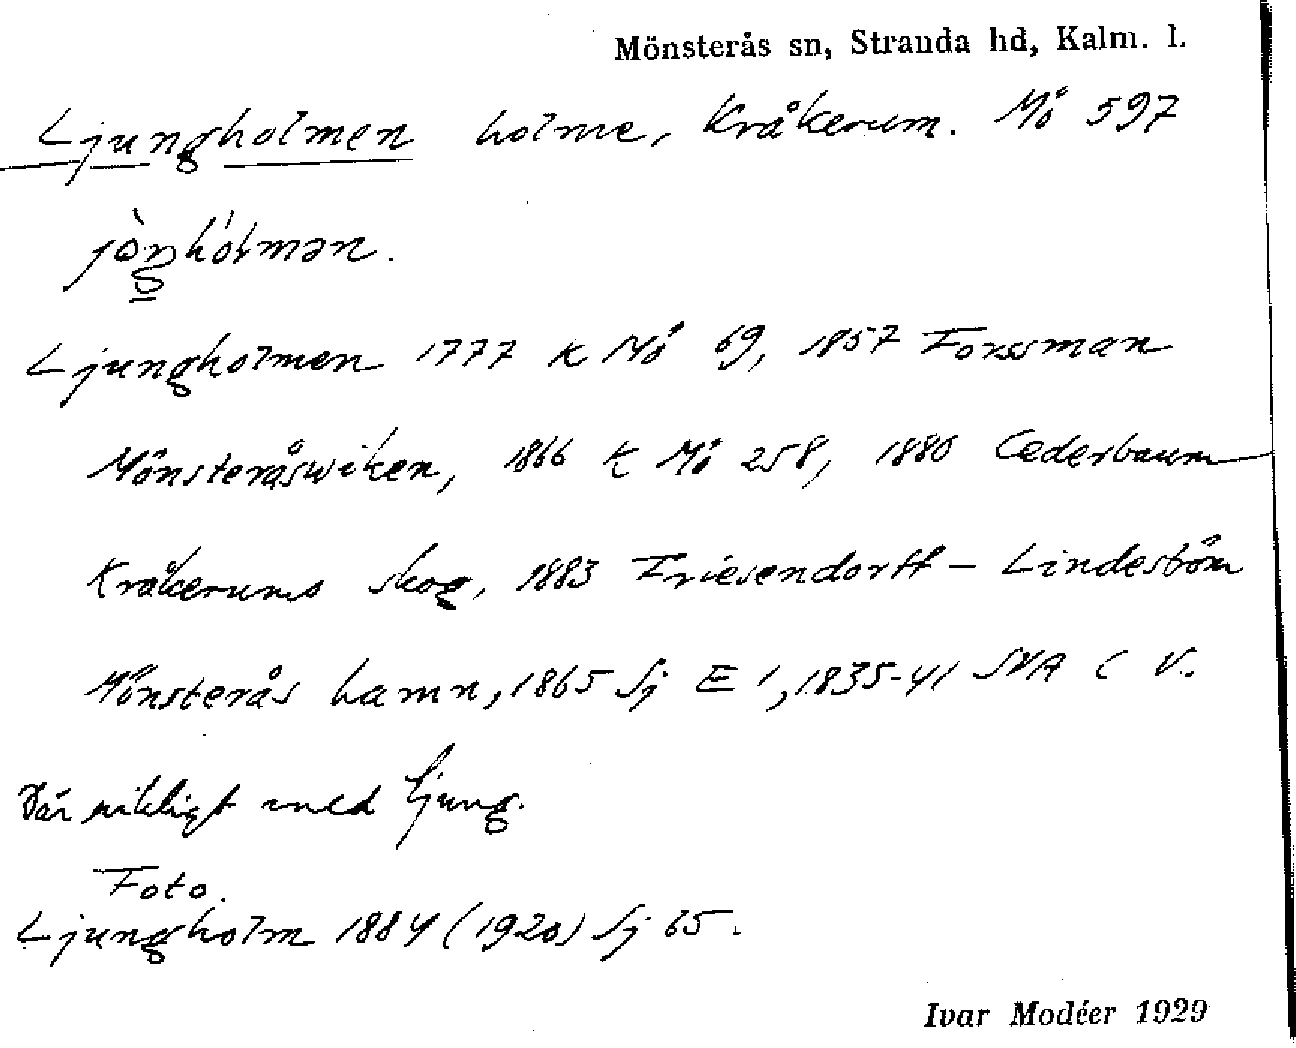 Mönsterås sn, Stranda hd, Kalm. l.
Ljungholmen holme, Kråkerum. Mö 597
jòŋhólmən.
Ljungholmen 1777 K Mö 69, 1857 Forssman
Mönsteråswiken, 1866 K Mö 258, 1880 Cederbaum
Kråkerums skog, 1883 Friesendorff - Lindeström
Mönsterås hamn, 1865 Sj E 1, 1835-41 SKA C V.
Där rikligt med ljung.
Foto.
Ljungholm 1884 (1920) Sj 65.
Ivar Modéer 1929